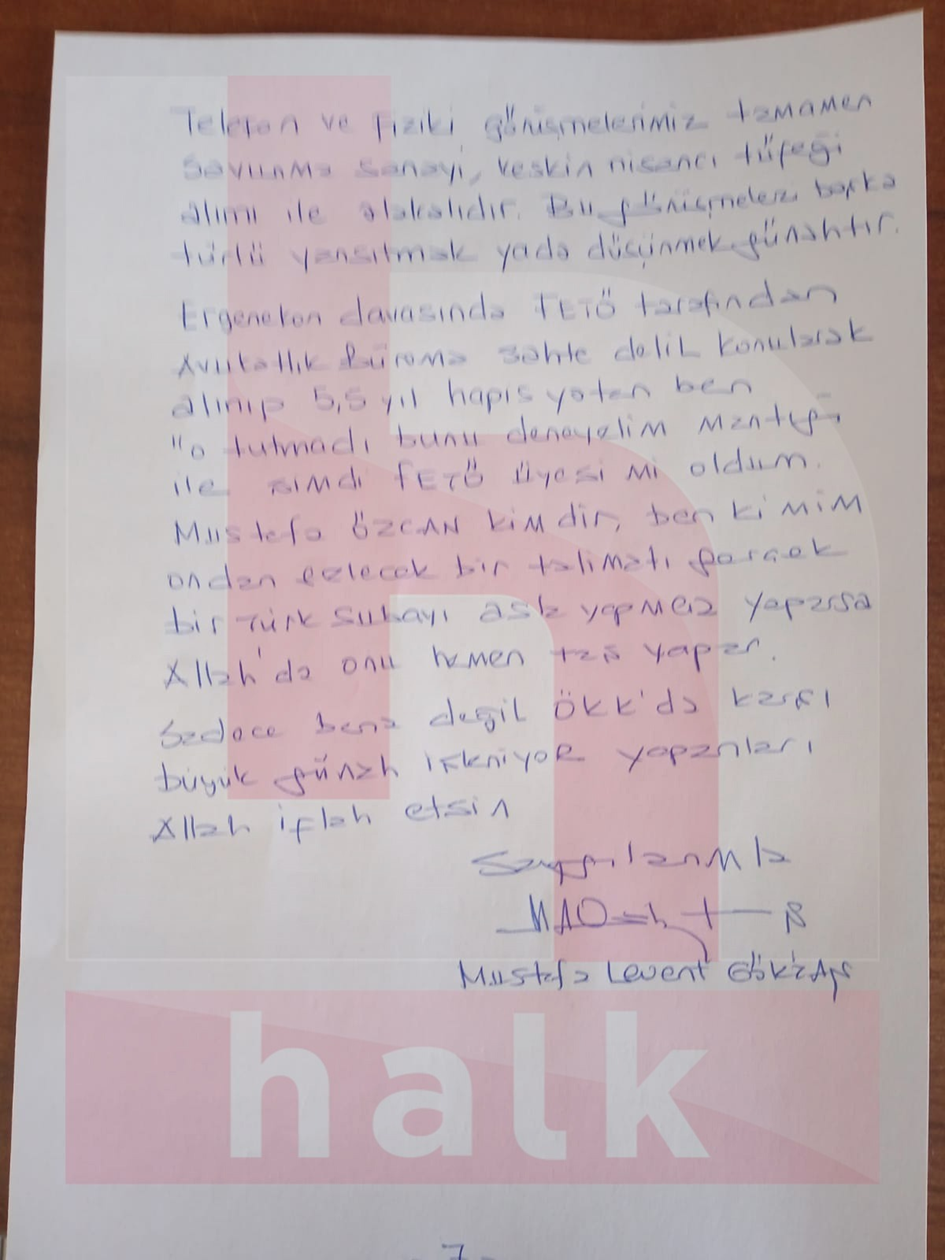 Telefon ve fiziki görüşmelerimiz tamamen
savunma sanayi, keskin nisancı tüfeği
alımı ile alakalıdır. Bu görüşmeleri başka
türlü yansıtmak yada düşünmek günahtır.
Ergenekon davasında FETÖ tarafından
Avukatlık Büroma sahte delil konularak
alınıp 5,5 yıl hapis yatan ben
"o tutmadı bunu deneyelim mantığı
ile şimdi FETÖ üyesi mi oldum.
Mustafa ÖZCAN kimdir, ben kimim
ondan gelecek bir talimatı gerçek
bir Türk Subayı asla yapmaz yaparsa
Allah'da onu hemen taş yapar.
Sadece bana değil ÖKK'da karşı
büyük günah işleniyor yapanları
Allah iflah etsin
Saygılarımla
Mustafa Levent GÖKTAŞ
halk
- 7 -